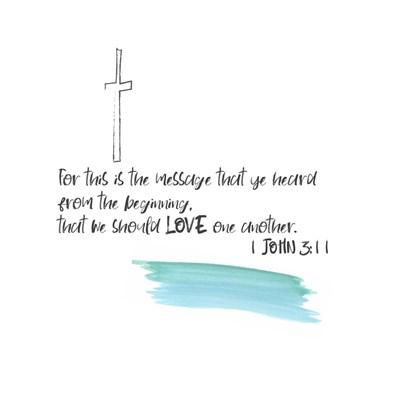 For this is the message that ye heard
from the beginning,
that we should LOVE one another.
1 JOHN 3:11